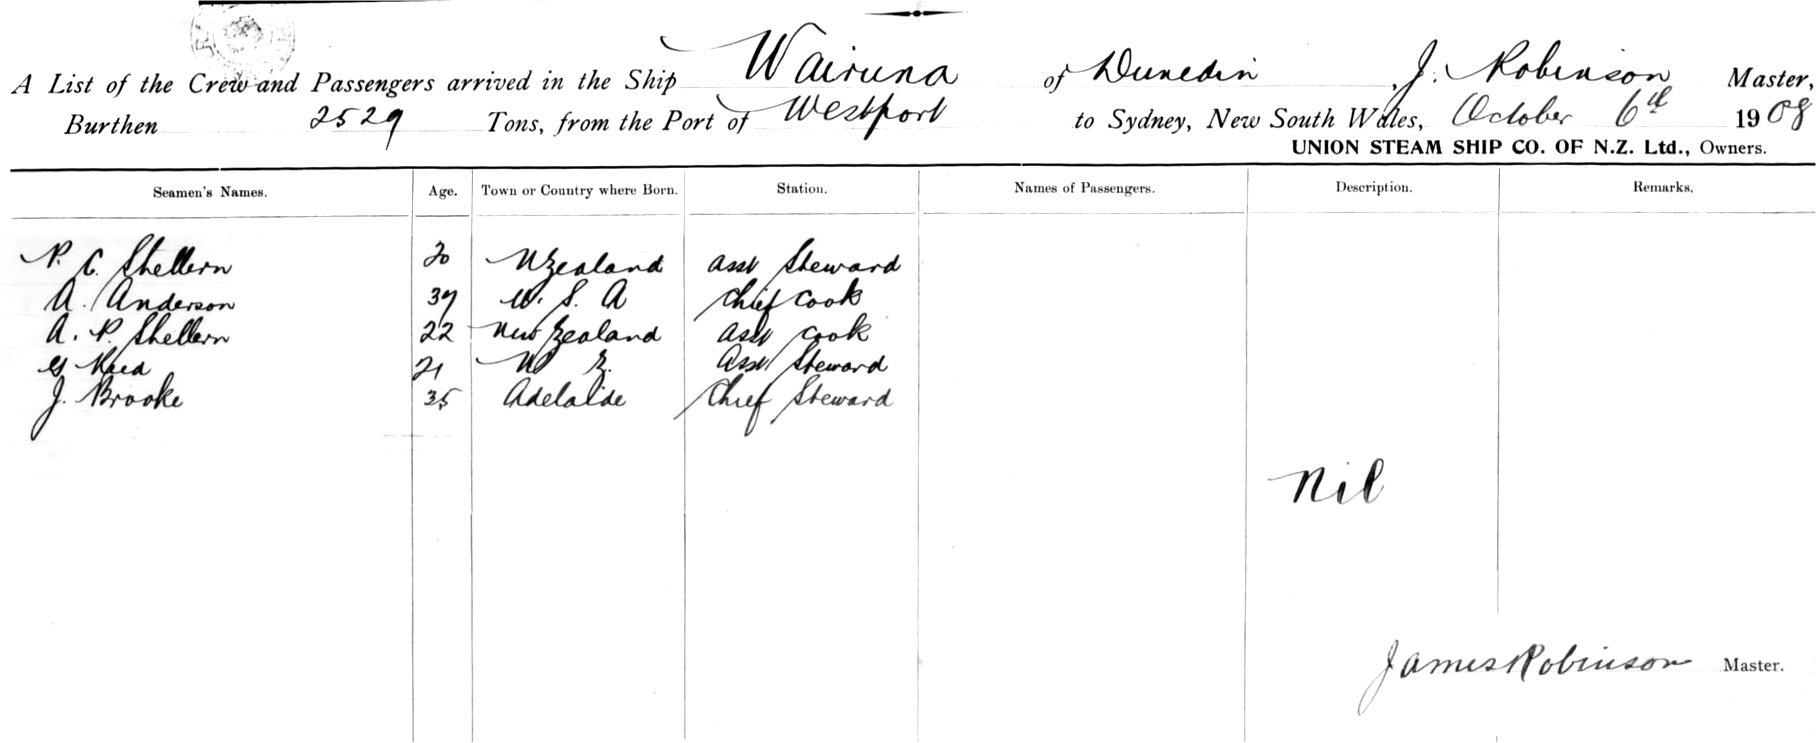 A List of the Crew and Passengers arrived in the Ship Wairuna of Dunedin, J. Robinson Master,
Burthen 2529 Tons, from the Port of Westport to Sydney, New South Wales, October 6th 1908
UNION STEAM SHIP CO. OF N.Z. Ltd., Owners.
Seamen's Names. Age. Town or Country where Born. Station. Names of Passengers. Description. Remarks.
P. C. Shellern 20 N Zealand asst Steward
A. Anderson 37 U. S. A Chief Cook
A. P. Shellern 22 New Zealand asst Cook
G 21 N Z. Asst Steward
J. Brooke 35 Adelaide Chief Steward
Nil
James Robinson Master.